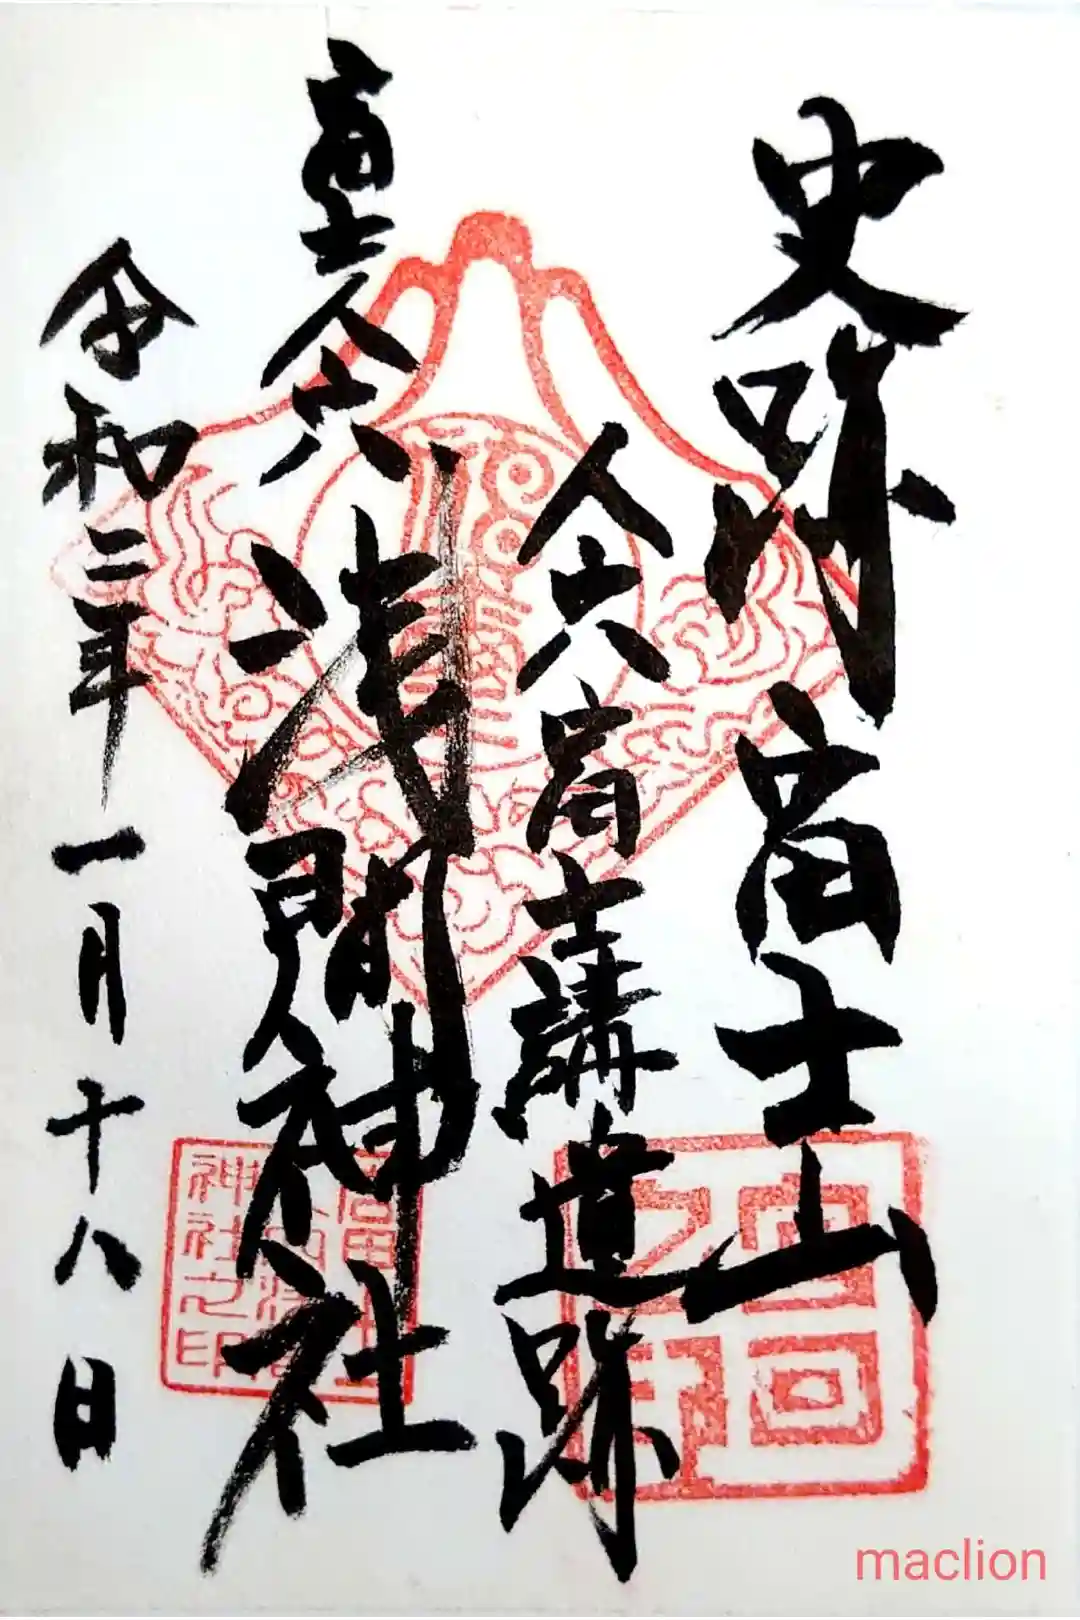 史跡富士山
人穴富士講遺跡
富士人穴
浅間神社
令和二年一月十八日
神社之印
maclion